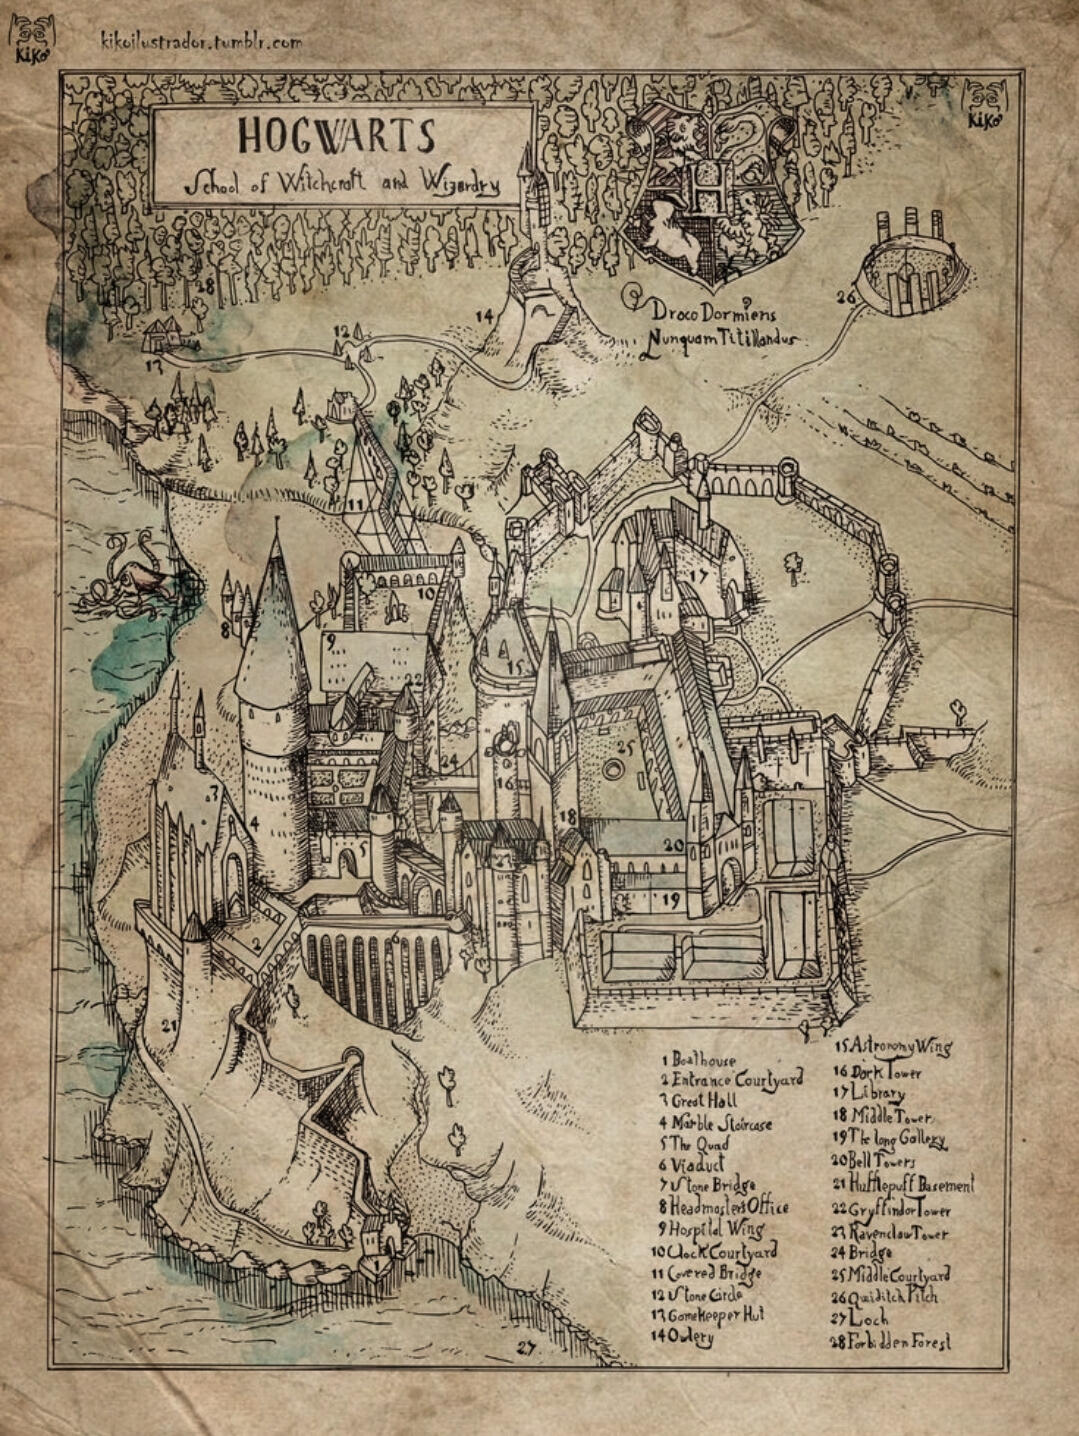 KiKo
kikoilustrador.tumblr.com
KiKo
HOGWARTS
School of Witchcraft and Wizardry
H
Draco Dormiens
Nunquam Titillandus
28
26
14
12
13
11
10
17
9
8
15
22
25
24
16
3
4
18
5
23
20
19
6
2
21
1
27
1 Boathouse
2 Entrance Courtyard
3 Great Hall
4 Marble Staircase
5 The Quad
6 Viaduct
7 Stone Bridge
8 Headmasters Office
9 Hospital Wing
10 Clock Courtyard
11 Covered Bridge
12 Stone Circle
13 Gamekeeper Hut
14 Owlery
15 Astronomy Wing
16 Dark Tower
17 Library
18 Middle Tower
19 The long Gallery
20 Bell Towers
21 Hufflepuff Basement
22 Gryffindor Tower
23 Ravenclaw Tower
24 Bridge
25 Middle Courtyard
26 Quiditch Pitch
27 Loch
28 Forbidden Forest